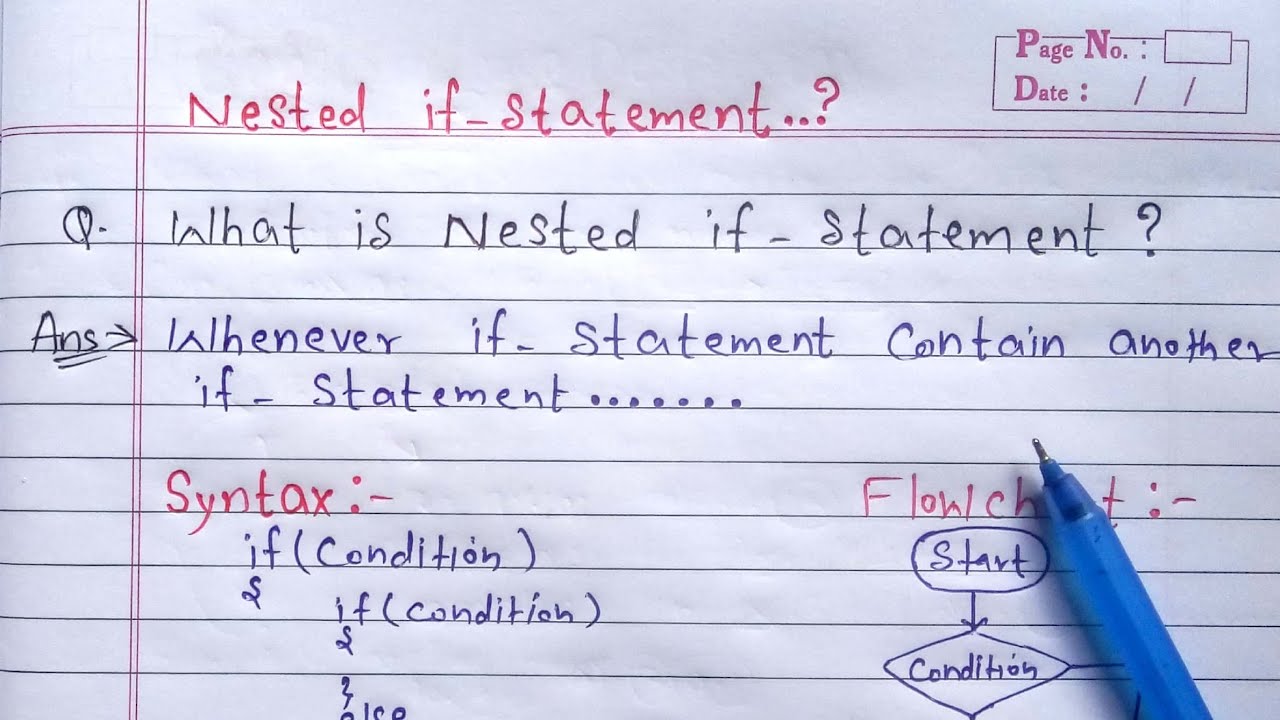 Page No. :
Date : / /
Nested if-statement..?
Q. What is Nested if-statement?
Ans→ Whenever if-statement Contain another
if-statement.......
Syntax:-
Flowchart:-
if(Condition)
{
if(condition)
{
}
else
Start
Condition